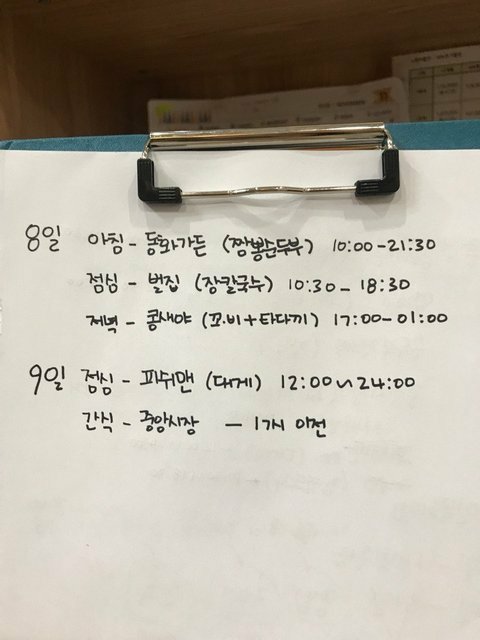 8일 아침 - 동화가든 (짬뽕순두부) 10:00-21:30
점심 - 벌집 (장칼국수) 10:30 - 18:30
저녁 - 콩새야 (꼬·비+타다끼) 17:00-01:00
9일 점심 - 피쉬맨 (대게) 12:00~24:00
간식 - 중앙시장 - 1시 이전